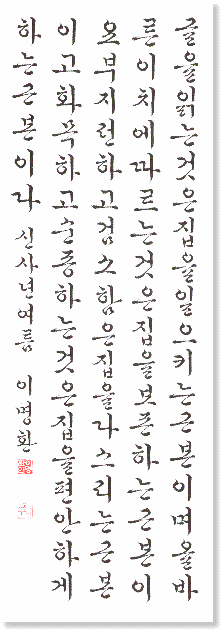 글을읽는것은집을일으키는근본이며올바
른이치에따르는것은집을보존하는근본이
오부지런하고검소함은집을다스리는근본
이고화목하고순종하는것은집을편안하게
하는근본이다 신사년여름 이명환